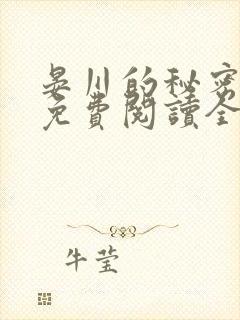 晏川的秘密
免費閱讀全
牛莹